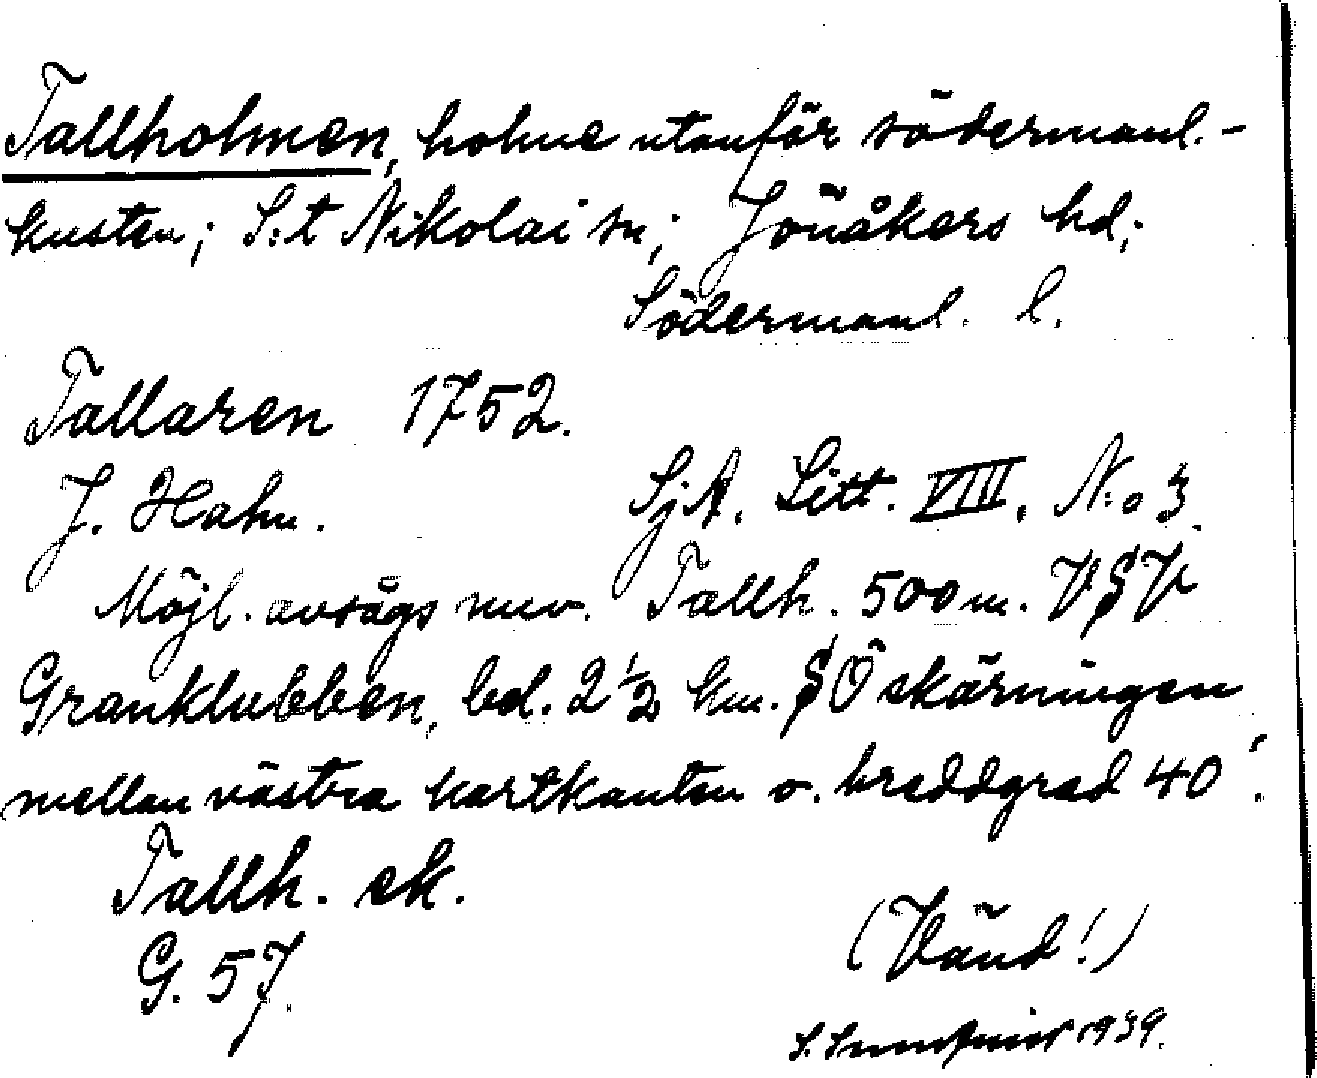 Tallholmen, holme utanför södermanl.-
kusten; S:t Nikolai sn; Jönåkers hd;
Södermanl. l.
Tallaren 1752.
J. Hahn. SjA. Litt. VIII. N:o 3.
Möjl. avsågs nuv. Tallh. 500 m. VSV
Granklubben, bel. 2 1/2 km. SÖ skärningen
mellan västra kartkanten o. breddgrad 40'.
Tallh. sk.
G. 57.
(Vänd!)
S. 1939.